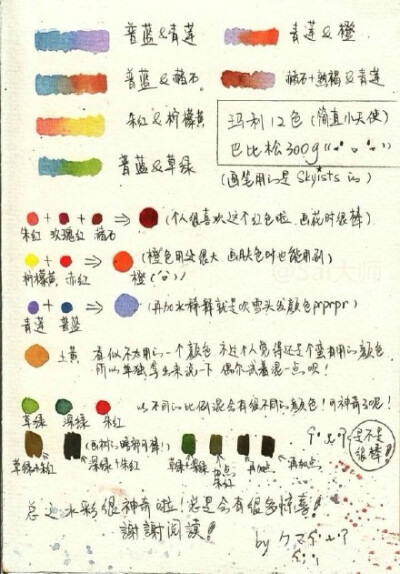 普蓝&青莲
青莲&橙
普蓝&赭石
赭石+熟褐&青莲
朱红&柠檬黄
玛利12色(简直小天使)
巴比松300g
普蓝&草绿
(画笔用的是Skyists的)
(个人很喜欢这个红色啦 画花时很棒)
朱红 玫瑰红 赭石
(橙色用处很大 画肤色时也能用到)
柠檬黄 赤红
橙
(再加水稀释就是吹雪头发颜色prprpr)
青莲 普蓝
土黄
看似不太用的一个颜色 不过个人觉得还是个蛮有用的颜色
所以单独拿出来说一下 偶尔试着混一点呗!
以不同的比例混会有很不同的颜色!可神奇了呢!
草绿 深绿 朱红
是不是很棒!
草绿+朱红
深绿+朱红
草绿+深绿
再加点
再加点
总之水彩很神奇啦!总是会有很多惊喜!
謝謝阅读!
by
@Sai大师